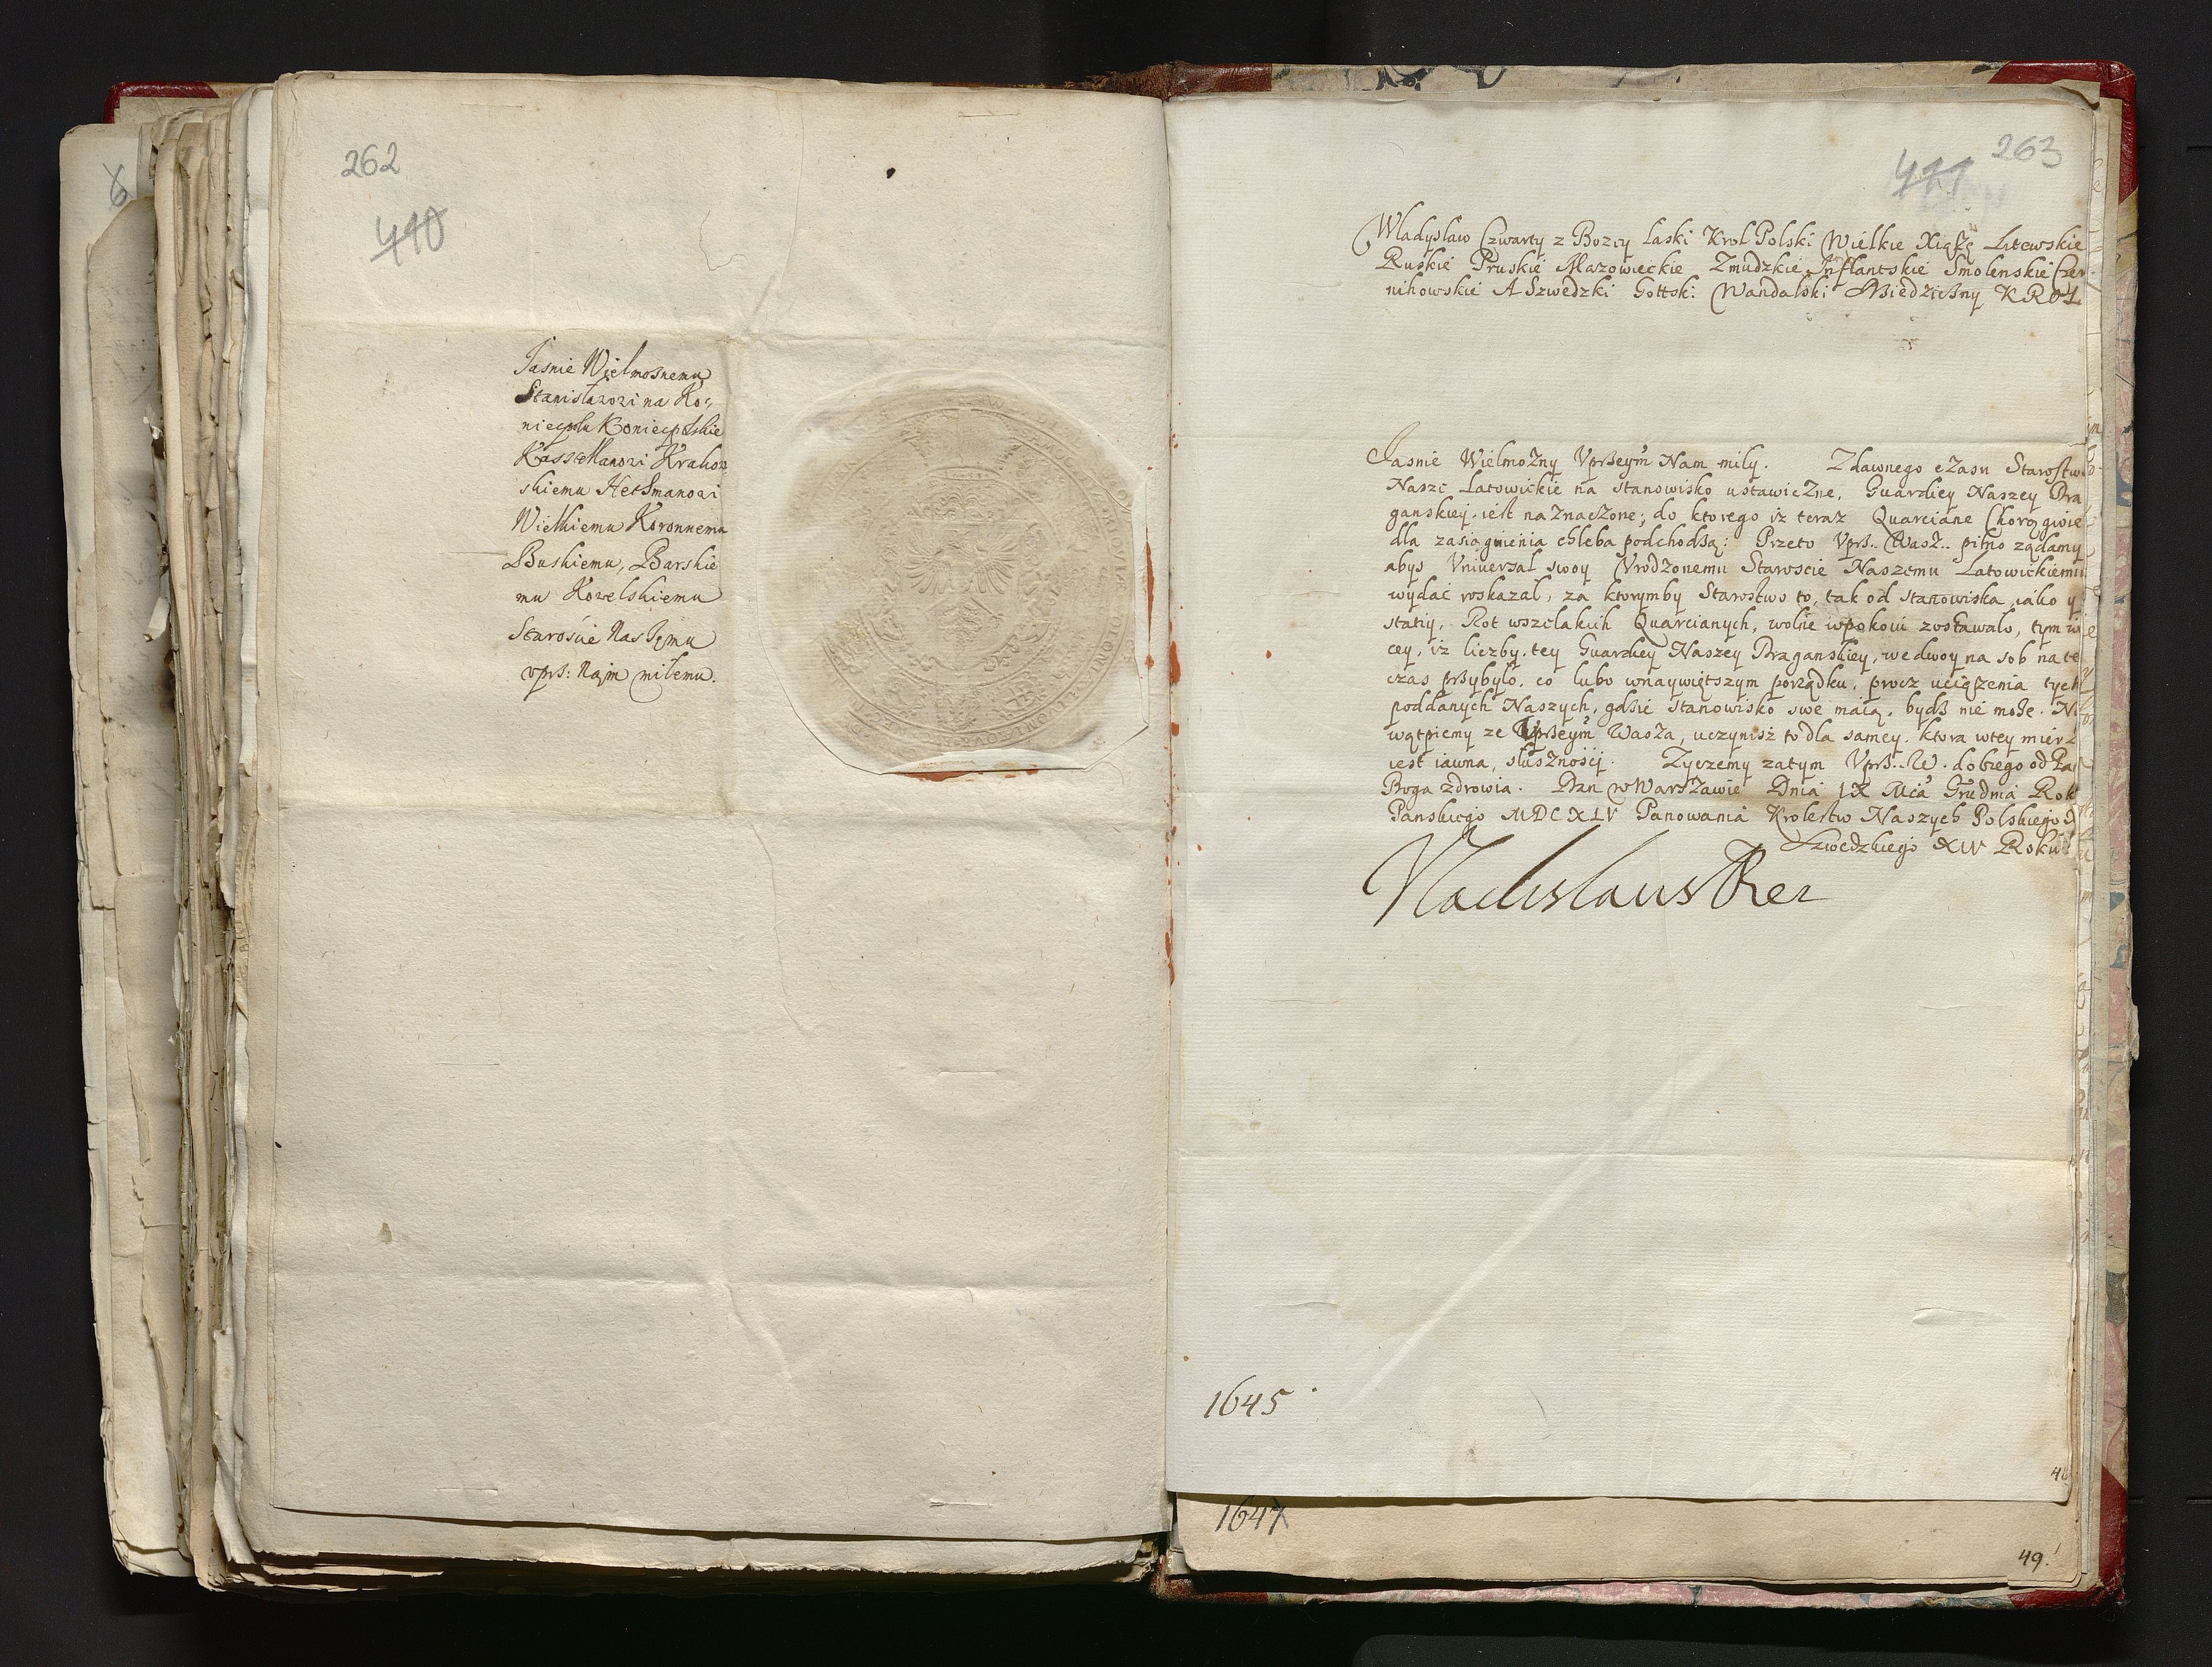 262
410
Jasnie Wielmosnemu
Stanisławowi na Ko:
niecpolu Koniecpolskie
Kasstellanowi Krakow
skiemu Hetmanowi
Wielkiemu Koronnemu
Buskiemu, Barskie
mu Kowelskiemu
Starośćie Naszemu
vprß: Najm miłemu.
263
411
Władysław Czwarty z Bozey Łaski Krol Polski Wielkie Xiąże Litewskie
Ruskie Pruskie Mazowieckie Zmudzkie Inflantskie Smolenskie Czer
nihowskie A Szwedzki Gottski Wandalski Dziedziczny KROL
Jasnie Wielmożny Vprzeym' Nam miły. Zdawnego czasu Starostwo
Nasze Latowickie na stanowisko ustawiczne, Guardiey Naszey Dra
ganskiey, iest naznaczone; do ktorego iz teraz Quarciane Chorągwie
dla zasiągnienia chleba podchodzą: Przeto Vprß. Wasz.. pilno ządamy
abys Vniuersał swoy Vrodzonemu Staroscie Naszemu Latowickiemu
wydać roskazał, za ktorymby Starostwo to, tak od stanowiska, iako y
statiy, Rot wszelakich Quarcianych, wolne wpokoiu zostawało, tym wi
cey, iz liczby tey Guardiey Naszey Draganskiey, we dwoy na sob na te
czas przybyło, co lubo wnaywiętszym porządku, procz uciążenia tych
poddanych Naszych, gdzie stanowisko swe maią, bydz nie może. Ni
wątpiemy ze Vprzeym' Wasza, uczynisz to dla samey, ktora wtey mierz
iest iawna, słusznosći. Zyczemy zatym Vprß. W. dobrego od Pa
Boga zdrowia. Dan w Warszawie Dnia IX Mca Grudnia Rok
Panskiego MDCXLV Panowania Krolestw Naszych Polskiego
Szwedzkiego XIV Roku
Vladislaus Rex
1645
1647
49.